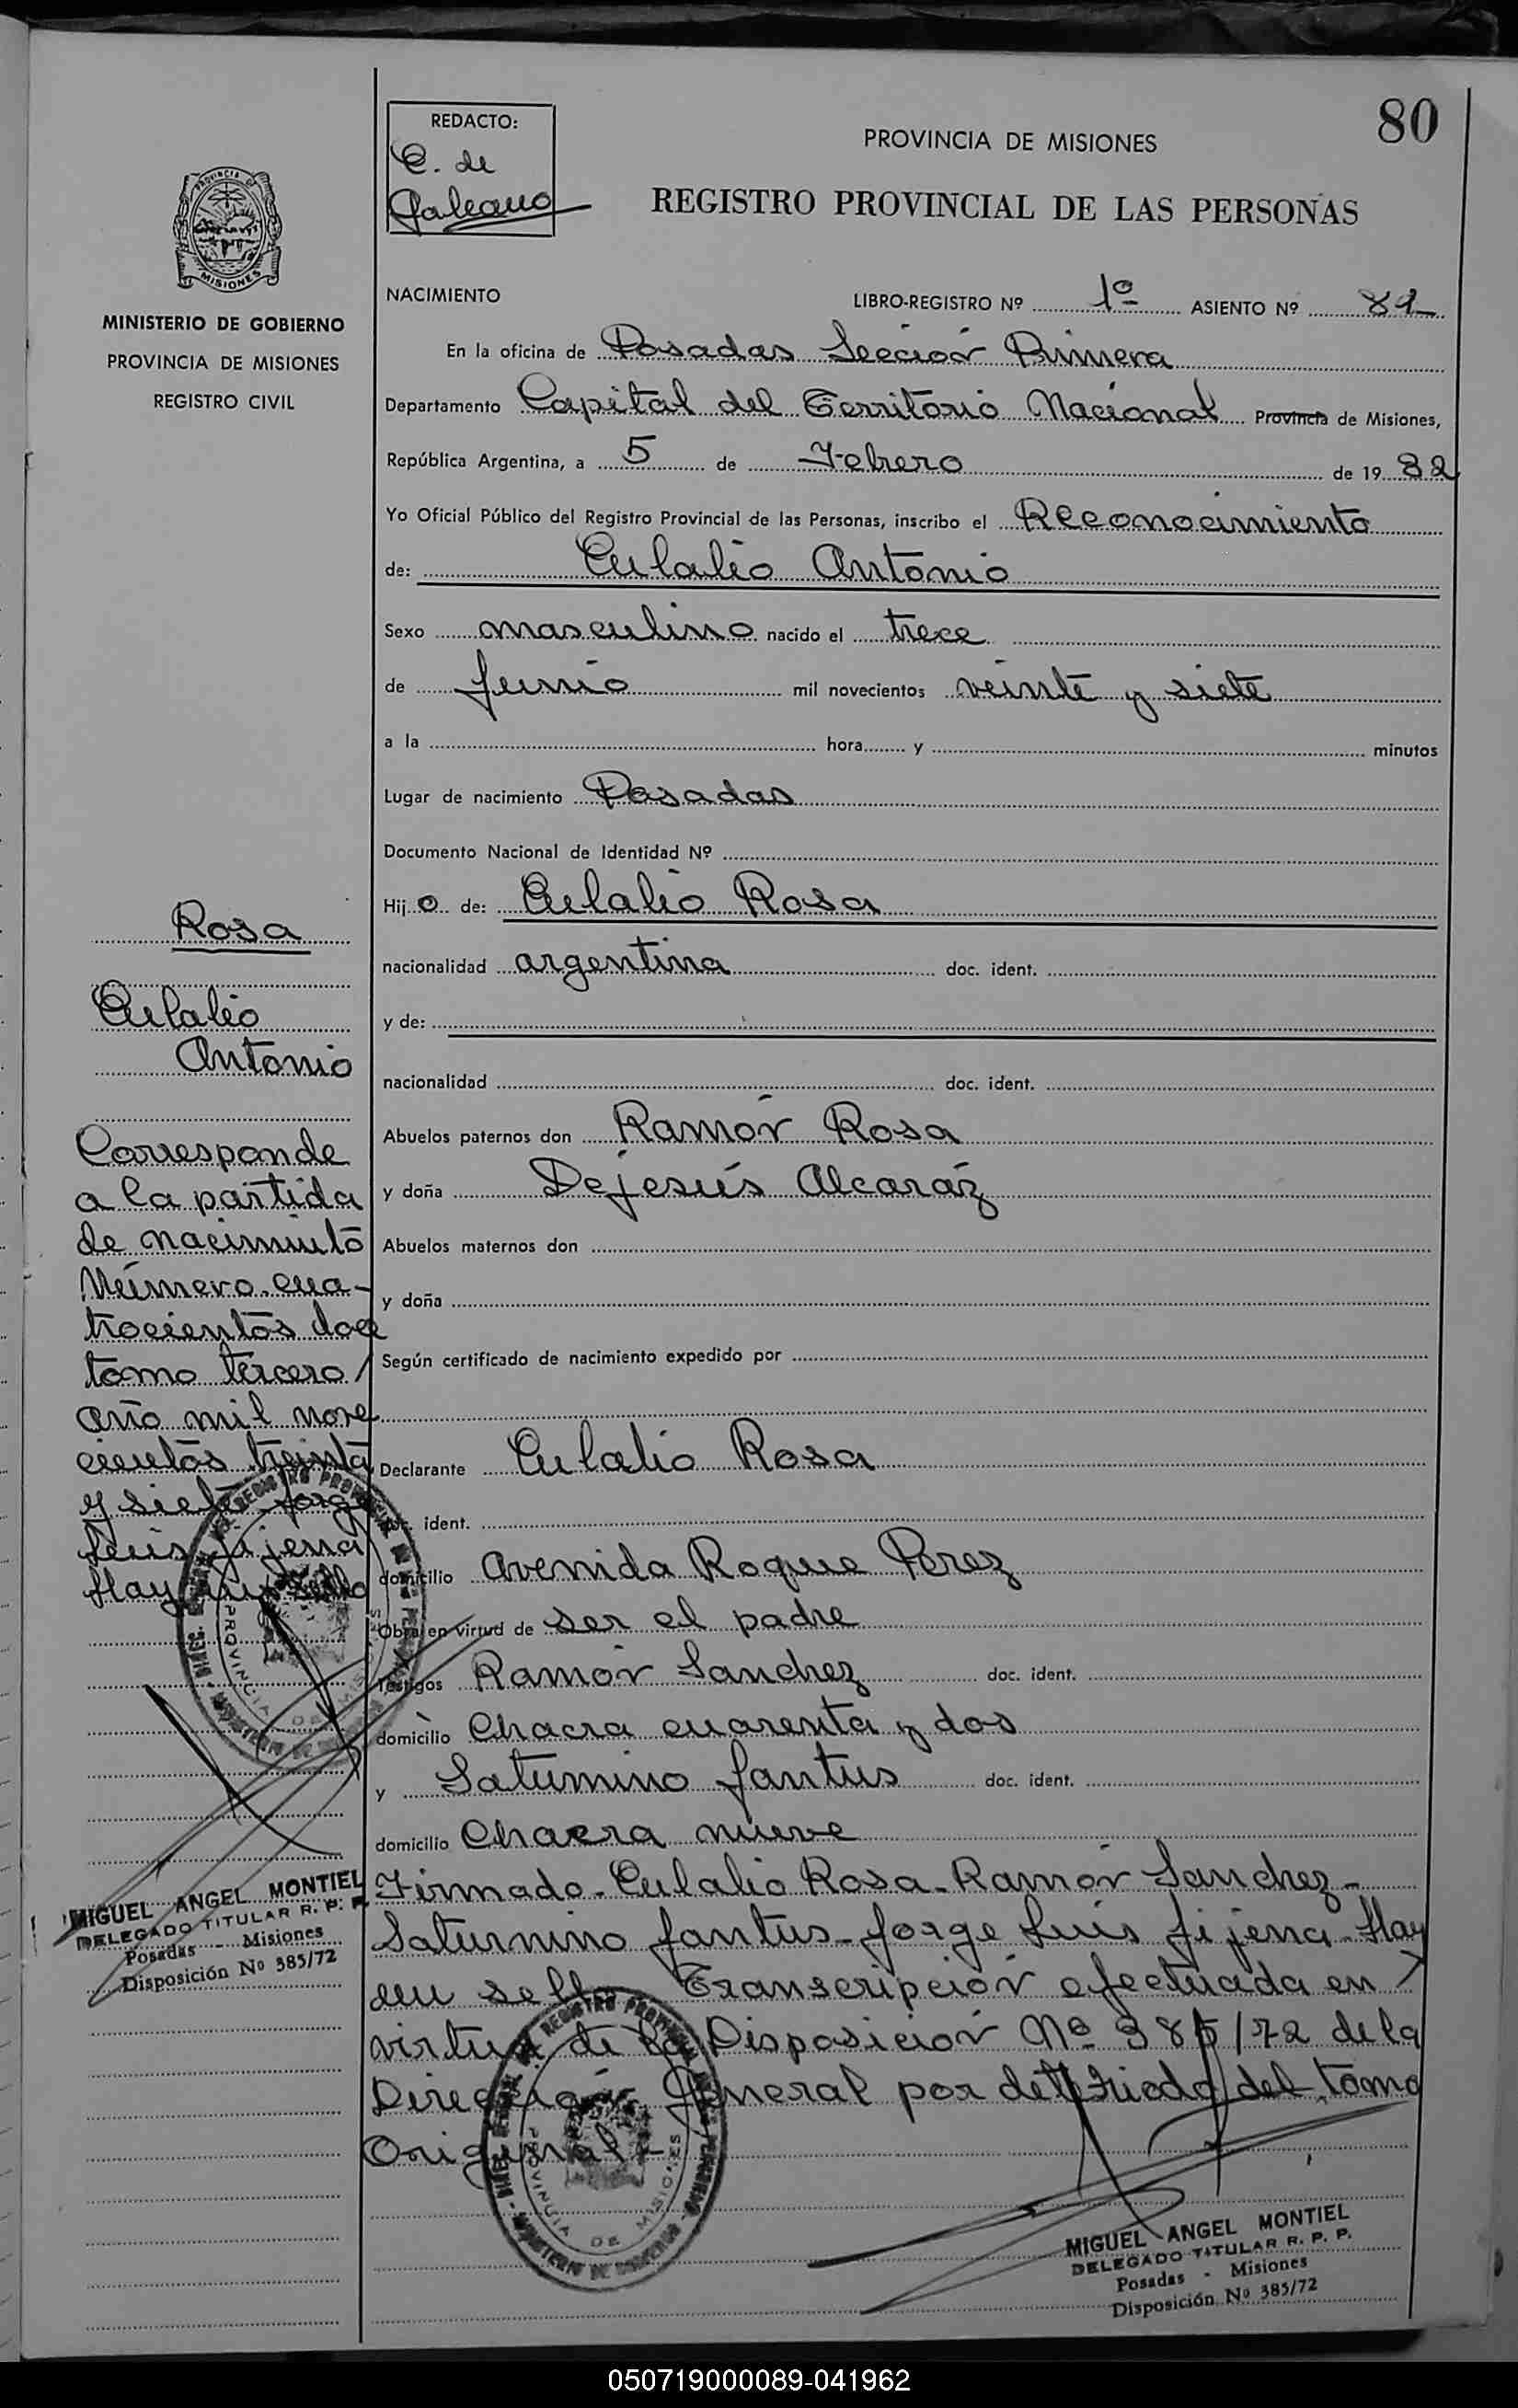 80
REDACTO:
C. de
Galeano
PROVINCIA DE MISIONES
REGISTRO PROVINCIAL DE LAS PERSONAS
PROVINCIA DE
MISIONES
MINISTERIO DE GOBIERNO
PROVINCIA DE MISIONES
REGISTRO CIVIL
NACIMIENTO LIBRO-REGISTRO Nº 1º ASIENTO Nº 81
En la oficina de Posadas Sección Primera
Departamento Capital del Territorio Nacional Provincia de Misiones,
República Argentina, a 5 de Febrero de 19 82
Yo Oficial Público del Registro Provincial de las Personas, inscribo el Reconocimiento
de: Eulalio Antonio
Sexo masculino nacido el trece
de Junio mil novecientos veinte y siete
a la hora y minutos
Lugar de nacimiento Posadas
Documento Nacional de Identidad Nº
Hij o de: Eulalio Rosa
nacionalidad argentina doc. ident.
y de:
nacionalidad doc. ident.
Abuelos paternos don Ramón Rosa
y doña Dejesús Alcaráz
Abuelos maternos don
y doña
Según certificado de nacimiento expedido por
Declarante Eulalio Rosa
doc. ident.
domicilio Avenida Roque Perez
Obra en virtud de ser el padre
Testigos Ramón Sanchez doc. ident.
domicilio Chacra cuarenta y dos
y Saturnino Jantus doc. ident.
domicilio Chacra nueve
Firmado. Eulalio Rosa. Ramón Sanchez.
Saturnino Jantus. Jorge Luis Jijena. Hay
un sello. Transcripción efectuada en /
virtud de la Disposición Nº 385/72 de la
Dirección General por deteriodo del tomo
Original.
Rosa
Eulalio
Antonio
Corresponde
a la partida
de nacimiento
Número cua-
trocientos doce
tomo tercero /
año mil nove
cientos treinta
y siete. Jorge
Luis Jijena
Hay un sello
MIGUEL ANGEL MONTIEL
DELEGADO TITULAR R. P. P.
Posadas - Misiones
Disposición Nº 385/72
MIGUEL ANGEL MONTIEL
DELEGADO TITULAR R. P. P.
Posadas - Misiones
Disposición Nº 385/72
PROVINCIA DE MISIONES
PROVINCIA DE MISIONES
050719000089-041962